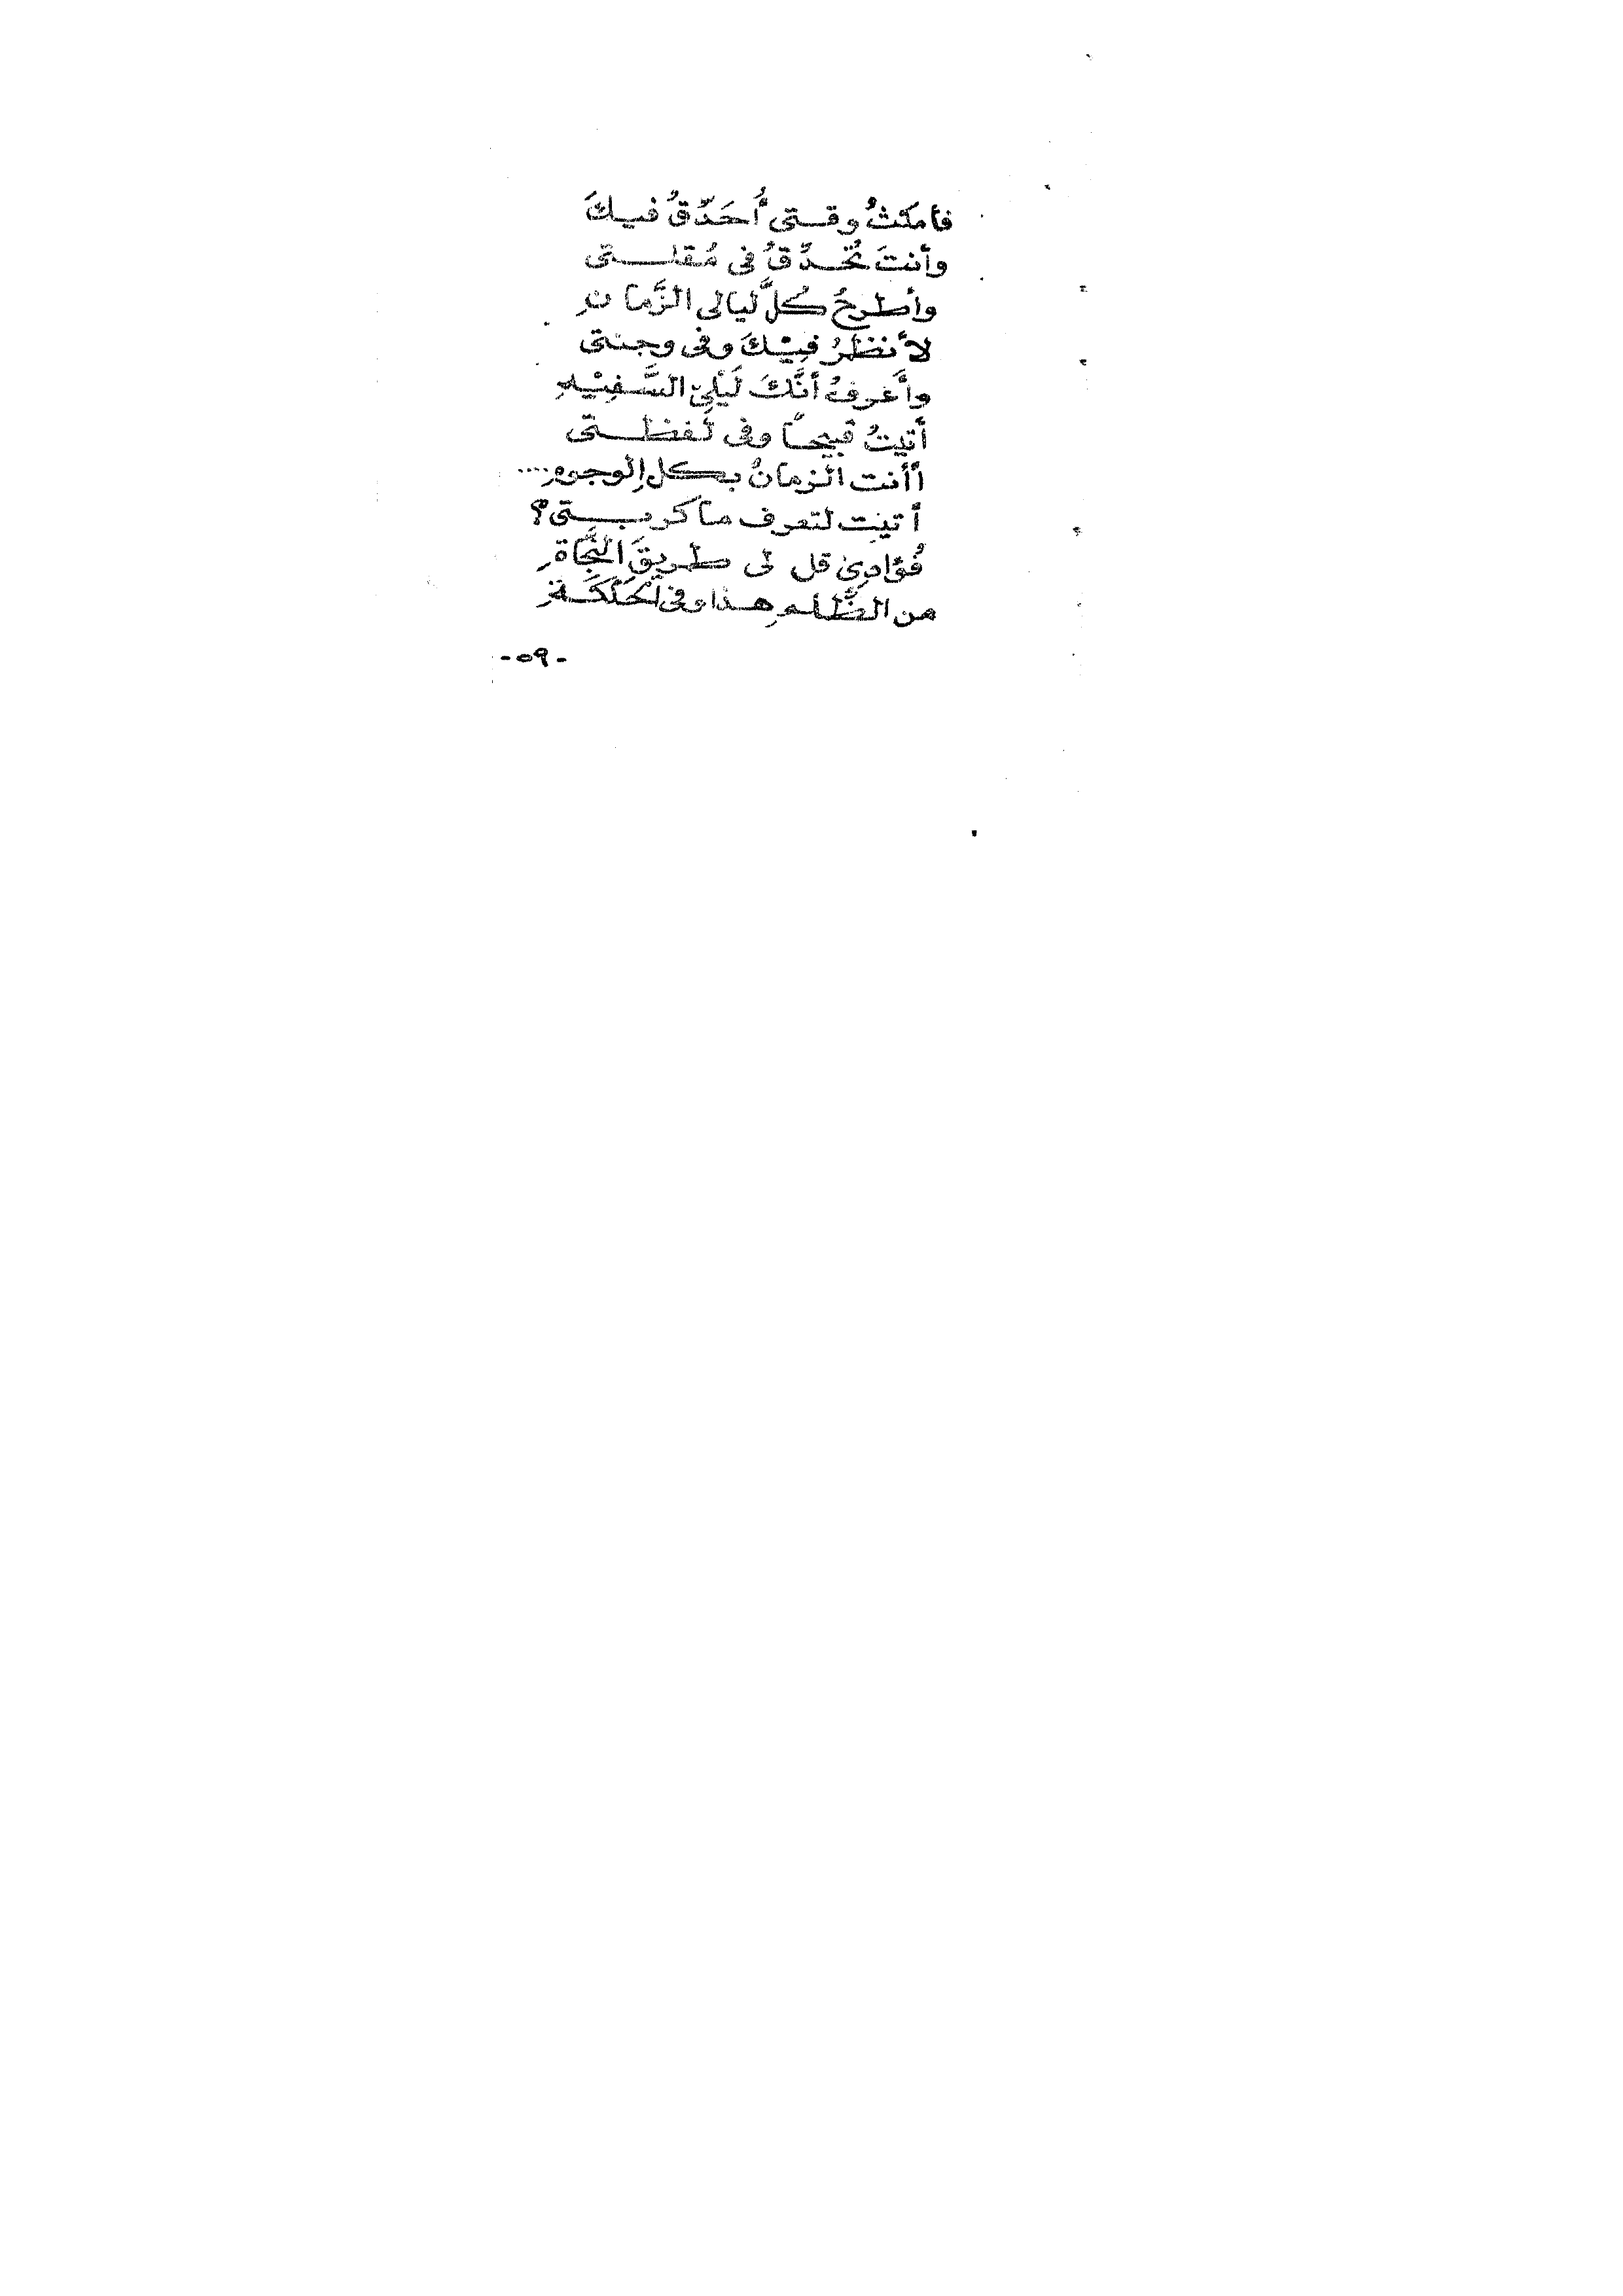 فأمكثُ وقتى أُحَدّقُ فيكَ
وأنتَ تُحدّقُ فى مُقلتى
وأطرحُ كُلَّ ليالى الزَّمانِ
لأنظرُ فيْكَ وفى وجنتى
وأَعرفُ أنَّكَ لَيْلِىَ السَّفِيْهِ
أتيتُ قبيحاً وفى لفظتى
أأنت الزمانُ بكل الوجوهِ....
أتيت لتعرف ما كربتى؟
فُؤادِىَ قل لى طريقَ النَّجَاةِ
من الظُّلمِ هذا وفى الحَلْكَةِ
-٥٩-